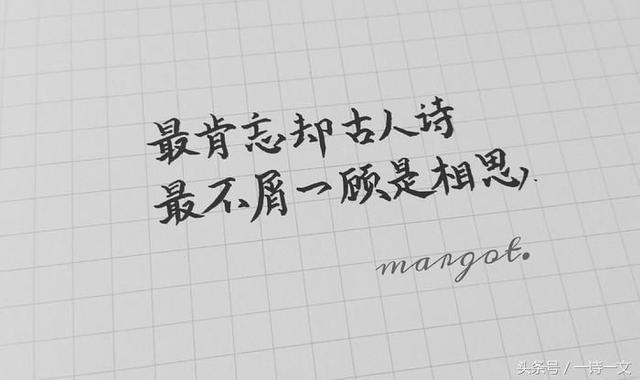 最肯忘却古人诗
最不屑一顾是相思
margot.
头条号/一诗一文